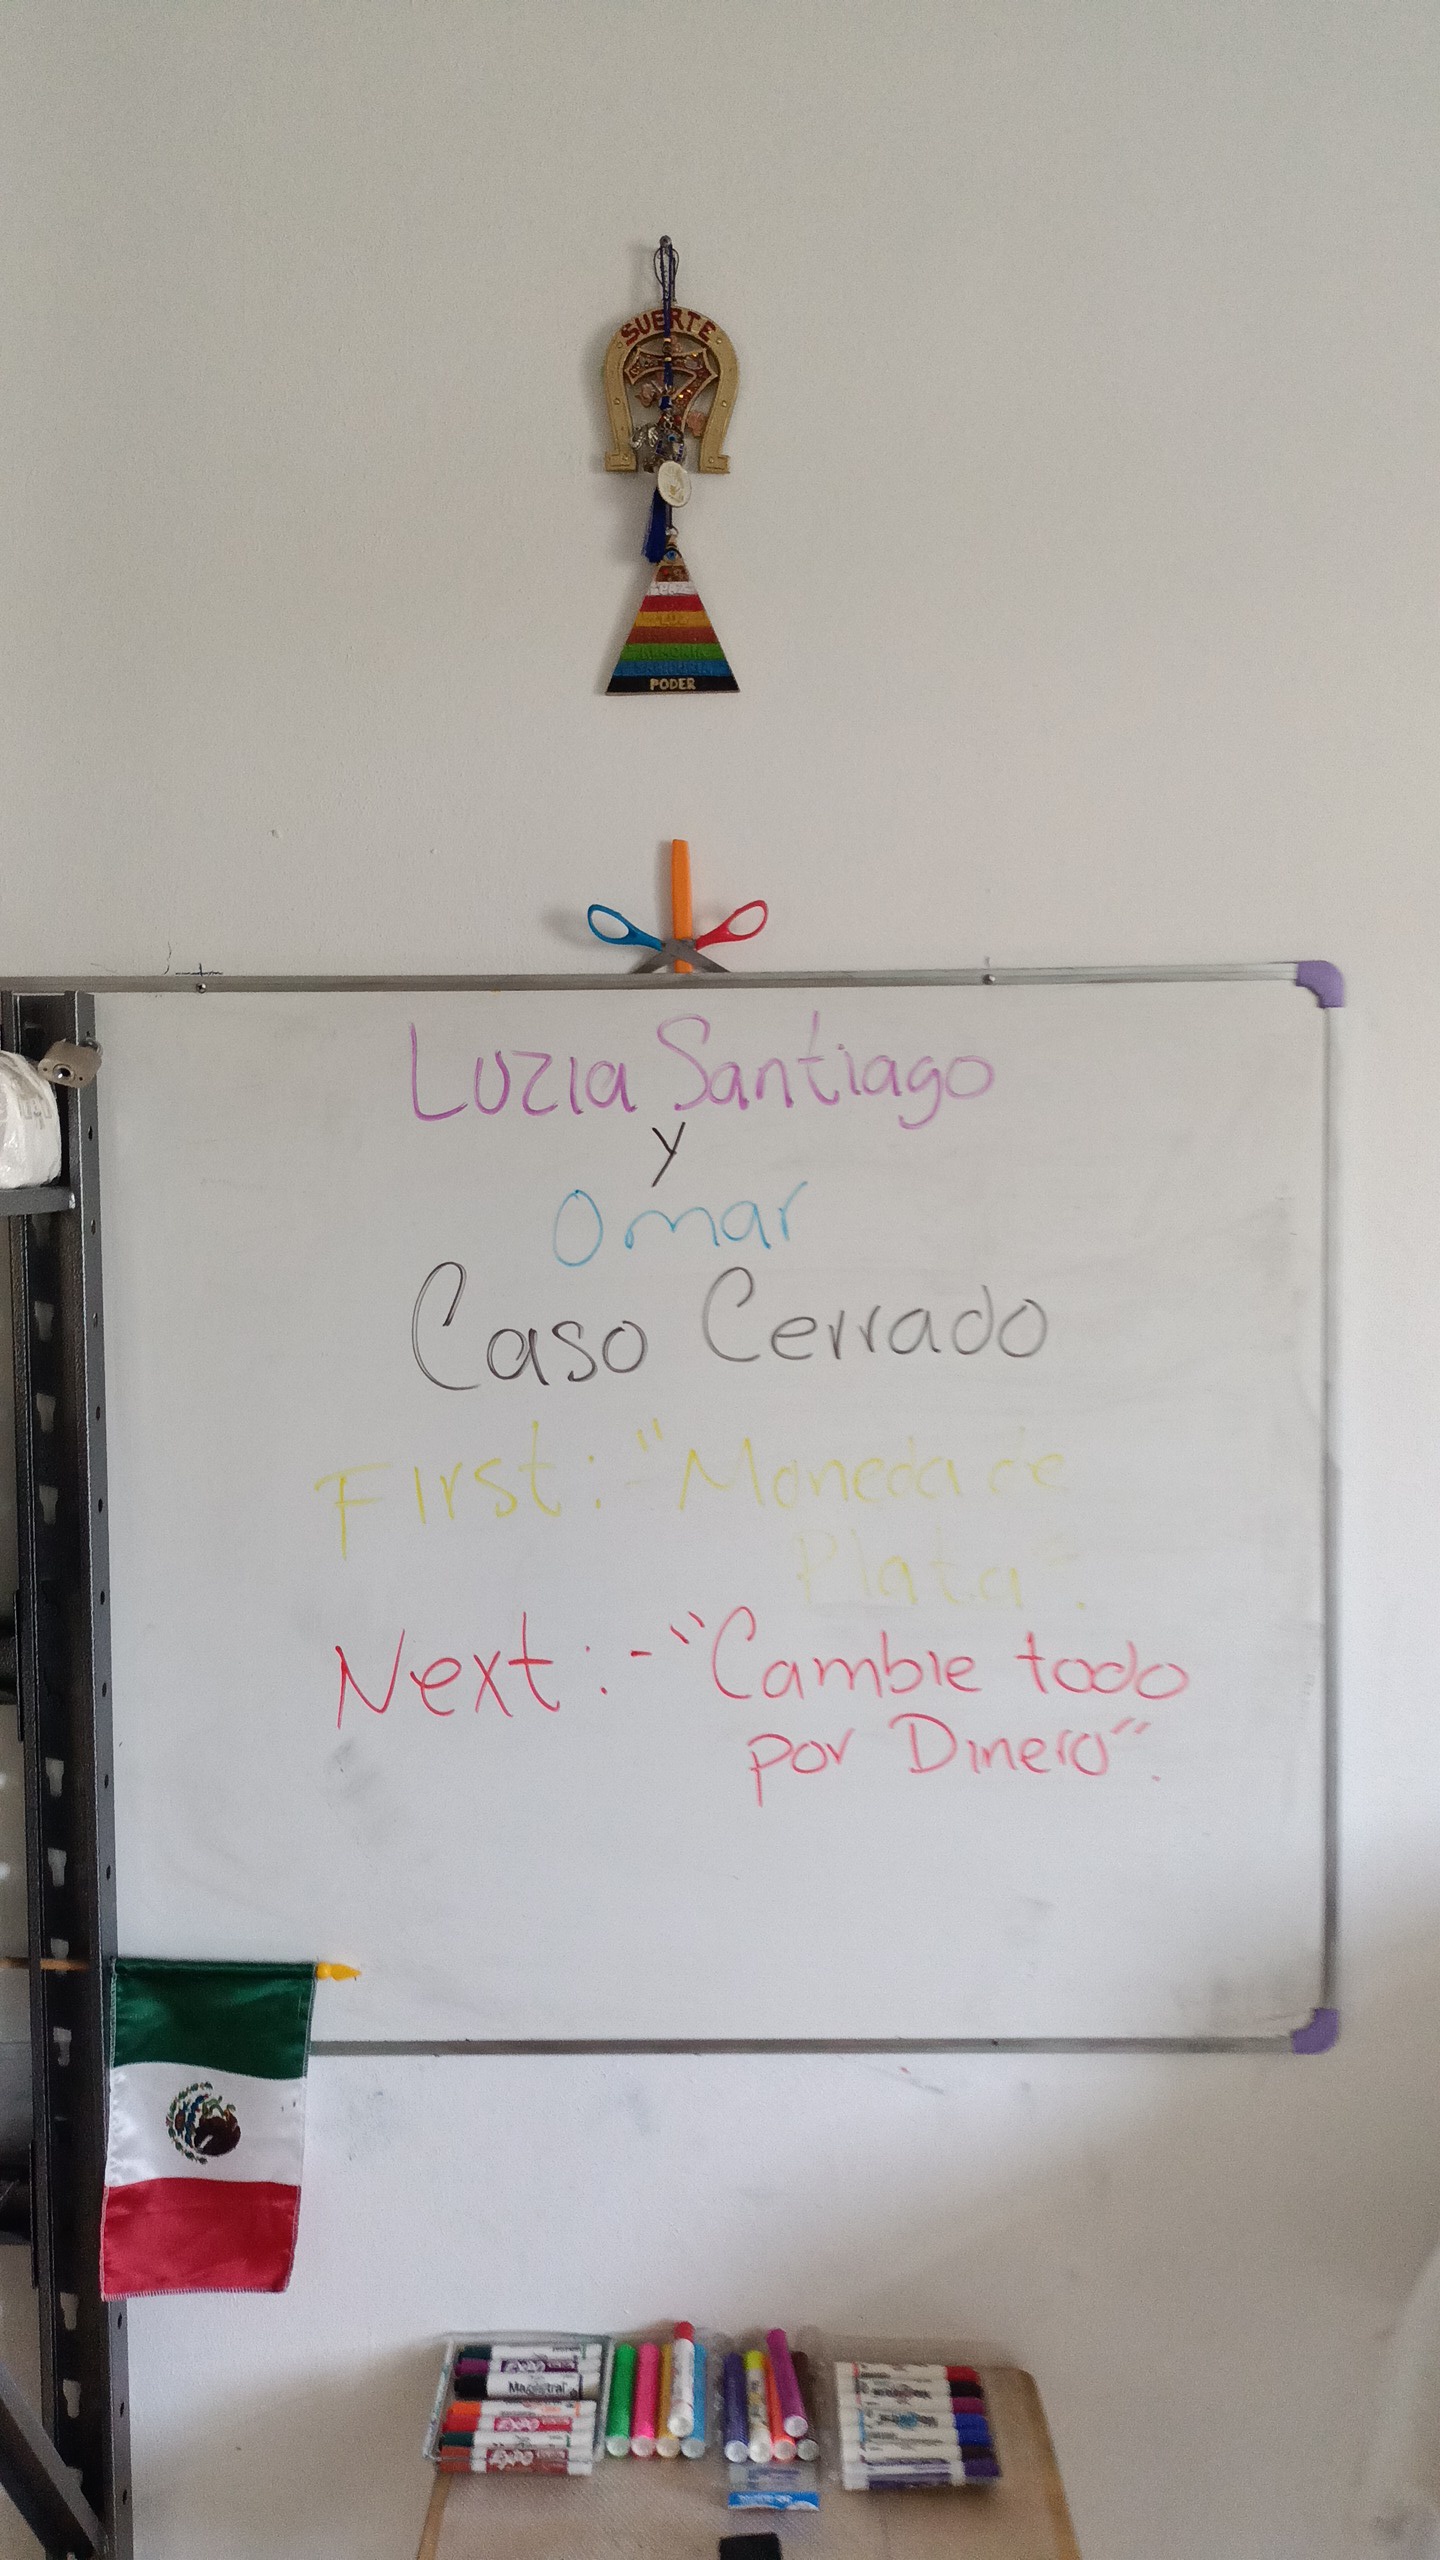 SUERTE
7
LUZ
PODER
Luzia Santiago
y
Omar
Caso Cerrado
First:-"Moneda de
Plata".
Next:-"Cambie todo
por Dinero".
EXPO
Magistral
EXPO
EXPO